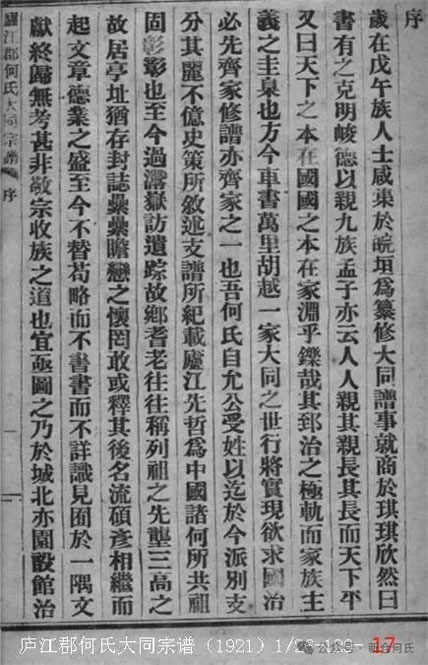 序
歲在戊午族人士咸集於皖垣爲纂修大同譜事就商於琪琪欣然曰
書有之克明峻德以親九族孟子亦云人人親其親長其長而天下平
又曰天下之本在國國之本在家淵乎鑠哉其郅治之極軌而家族主
義之圭臬也方今車書萬里胡越一家大同之世行將實現欲求國治
必先齊家修譜亦齊家之一也吾何氏自允公受姓以迄於今派別支
分其麗不億史策所敘述支譜所紀載廬江先哲爲中國諸何所共祖
固彰彰也至今過灊嶽訪遺踪故鄉耆老往往稱列祖之先壟三高之
故居亭址猶存封誌纍纍瞻戀之懷罔敢或釋其後名流碩彥相繼而
起文章德業之盛至今不替苟略而不書書而不詳識見囿於一隅文
獻終歸無考甚非敬宗收族之道也宜亟圖之乃於城北亦園設館治
廬江郡何氏大同宗譜 序 一
庐江郡何氏大同宗谱（1921）1/26-199- 17
公众号·新泊何氏